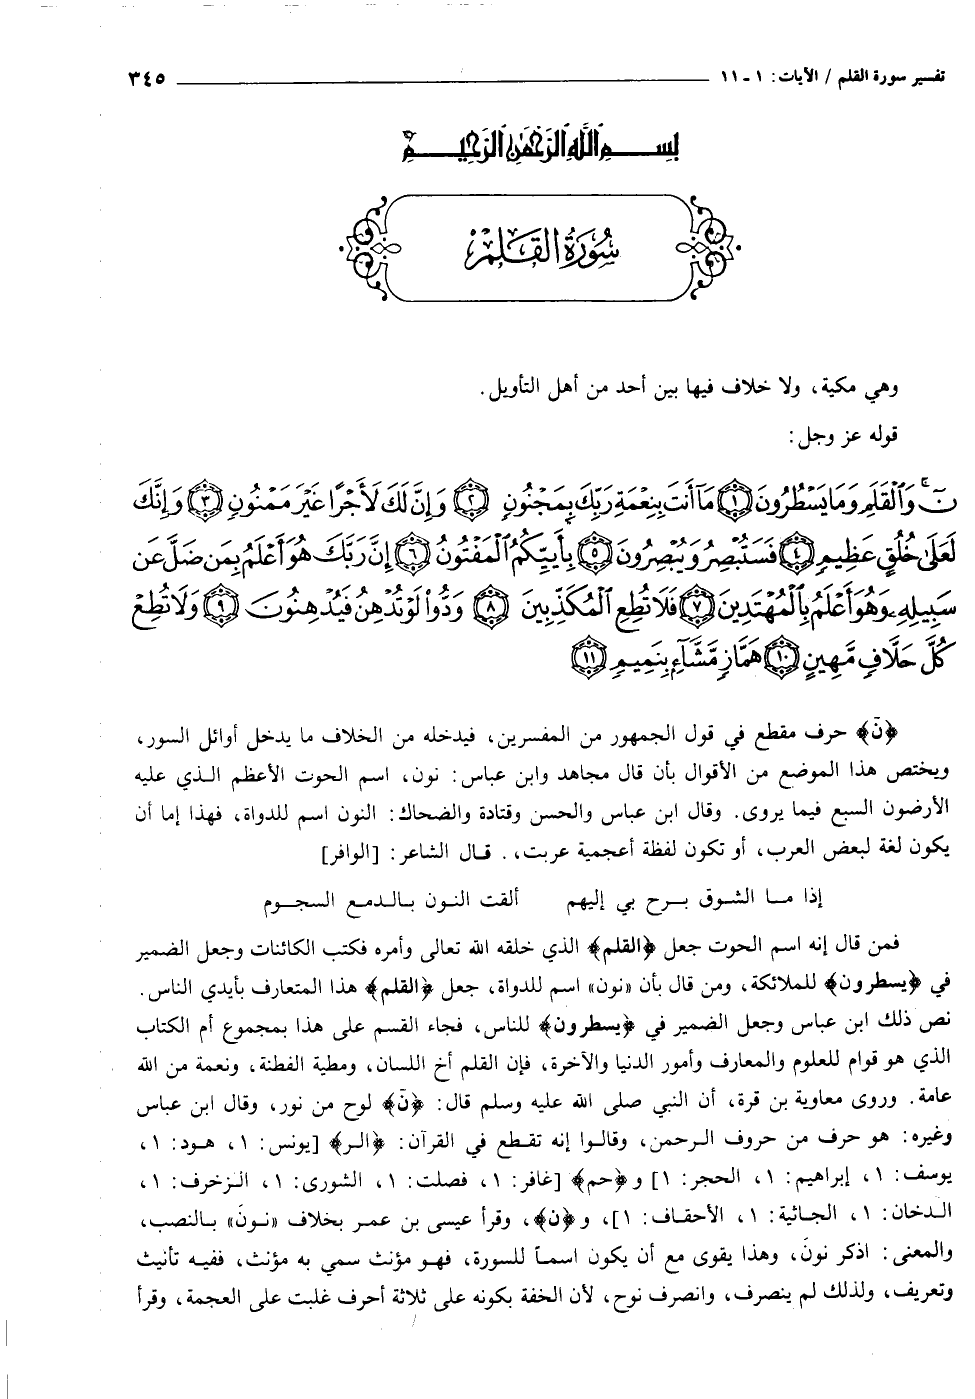 تفسير سورة القلم / الآيات: ١ - ١١ ٣٤٥
بِسْمِ اللَّهِ الرَّحْمَنِ الرَّحِيمِ
سُورَةُ القَلَمْ
وهي مكية، ولا خلاف فيها بين أحد من أهل التأويل.
قوله عز وجل:
نٓ ۚ وَٱلْقَلَمِ وَمَا يَسْطُرُونَ ﴿١﴾ مَآ أَنتَ بِنِعْمَةِ رَبِّكَ بِمَجْنُونٍ ﴿٢﴾ وَإِنَّ لَكَ لَأَجْرًا غَيْرَ مَمْنُونٍ ﴿٣﴾ وَإِنَّكَ
لَعَلَىٰ خُلُقٍ عَظِيمٍ ﴿٤﴾ فَسَتُبْصِرُ وَيُبْصِرُونَ ﴿٥﴾ بِأَييِّكُمُ ٱلْمَفْتُونُ ﴿٦﴾ إِنَّ رَبَّكَ هُوَ أَعْلَمُ بِمَن ضَلَّ عَن
سَبِيلِهِۦ وَهُوَ أَعْلَمُ بِٱلْمُهْتَدِينَ ﴿٧﴾ فَلَا تُطِعِ ٱلْمُكَذِّبِينَ ﴿٨﴾ وَدُّوا۟ لَوْ تُدْهِنُ فَيُدْهِنُونَ ﴿٩﴾ وَلَا تُطِعْ
كُلَّ حَلَّافٍ مَّهِينٍ ﴿١٠﴾ هَمَّازٍ مَّشَّآءٍۭ بِنَمِيمٍ ﴿١١﴾
﴿نَ﴾ حرف مقطع في قول الجمهور من المفسرين، فيدخله من الخلاف ما يدخل أوائل السور،
ويختص هذا الموضع من الأقوال بأن قال مجاهد وابن عباس: نون، اسم الحوت الأعظم الذي عليه
الأرضون السبع فيما يروى. وقال ابن عباس والحسن وقتادة والضحاك: النون اسم للدواة، فهذا إما أن
يكون لغة لبعض العرب، أو تكون لفظة أعجمية عربت،. قال الشاعر: [الوافر]
إذا ما الشوق برح بي إليهم ألقت النون بالدمع السجوم
فمن قال إنه اسم الحوت جعل ﴿القلم﴾ الذي خلقه الله تعالى وأمره فكتب الكائنات وجعل الضمير
في ﴿يسطرون﴾ للملائكة، ومن قال بأن «نون» اسم للدواة، جعل ﴿القلم﴾ هذا المتعارف بأيدي الناس.
نص ذلك ابن عباس وجعل الضمير في ﴿يسطرون﴾ للناس، فجاء القسم على هذا بمجموع أم الكتاب
الذي هو قوام للعلوم والمعارف وأمور الدنيا والآخرة، فإن القلم أخ اللسان، ومطية الفطنة، ونعمة من الله
عامة. وروى معاوية بن قرة، أن النبي صلى الله عليه وسلم قال: ﴿نَ﴾ لوح من نور، وقال ابن عباس
وغيره: هو حرف من حروف الرحمن، وقالوا إنه تقطع في القرآن: ﴿الر﴾ [يونس: ١، هود: ١،
يوسف: ١، إبراهيم: ١، الحجر: ١] و﴿حم﴾ [غافر: ١، فصلت: ١، الشورى: ١، الزخرف: ١،
الدخان: ١، الجاثية: ١، الأحقاف: ١]، و﴿ن﴾، وقرأ عيسى بن عمر بخلاف «نونَ» بالنصب،
والمعنى: اذكر نونَ، وهذا يقوى مع أن يكون اسماً للسورة، فهو مؤنث سمي به مؤنث، ففيه تأنيث
وتعريف، ولذلك لم ينصرف، وانصرف نوح، لأن الخفة بكونه على ثلاثة أحرف غلبت على العجمة، وقرأ